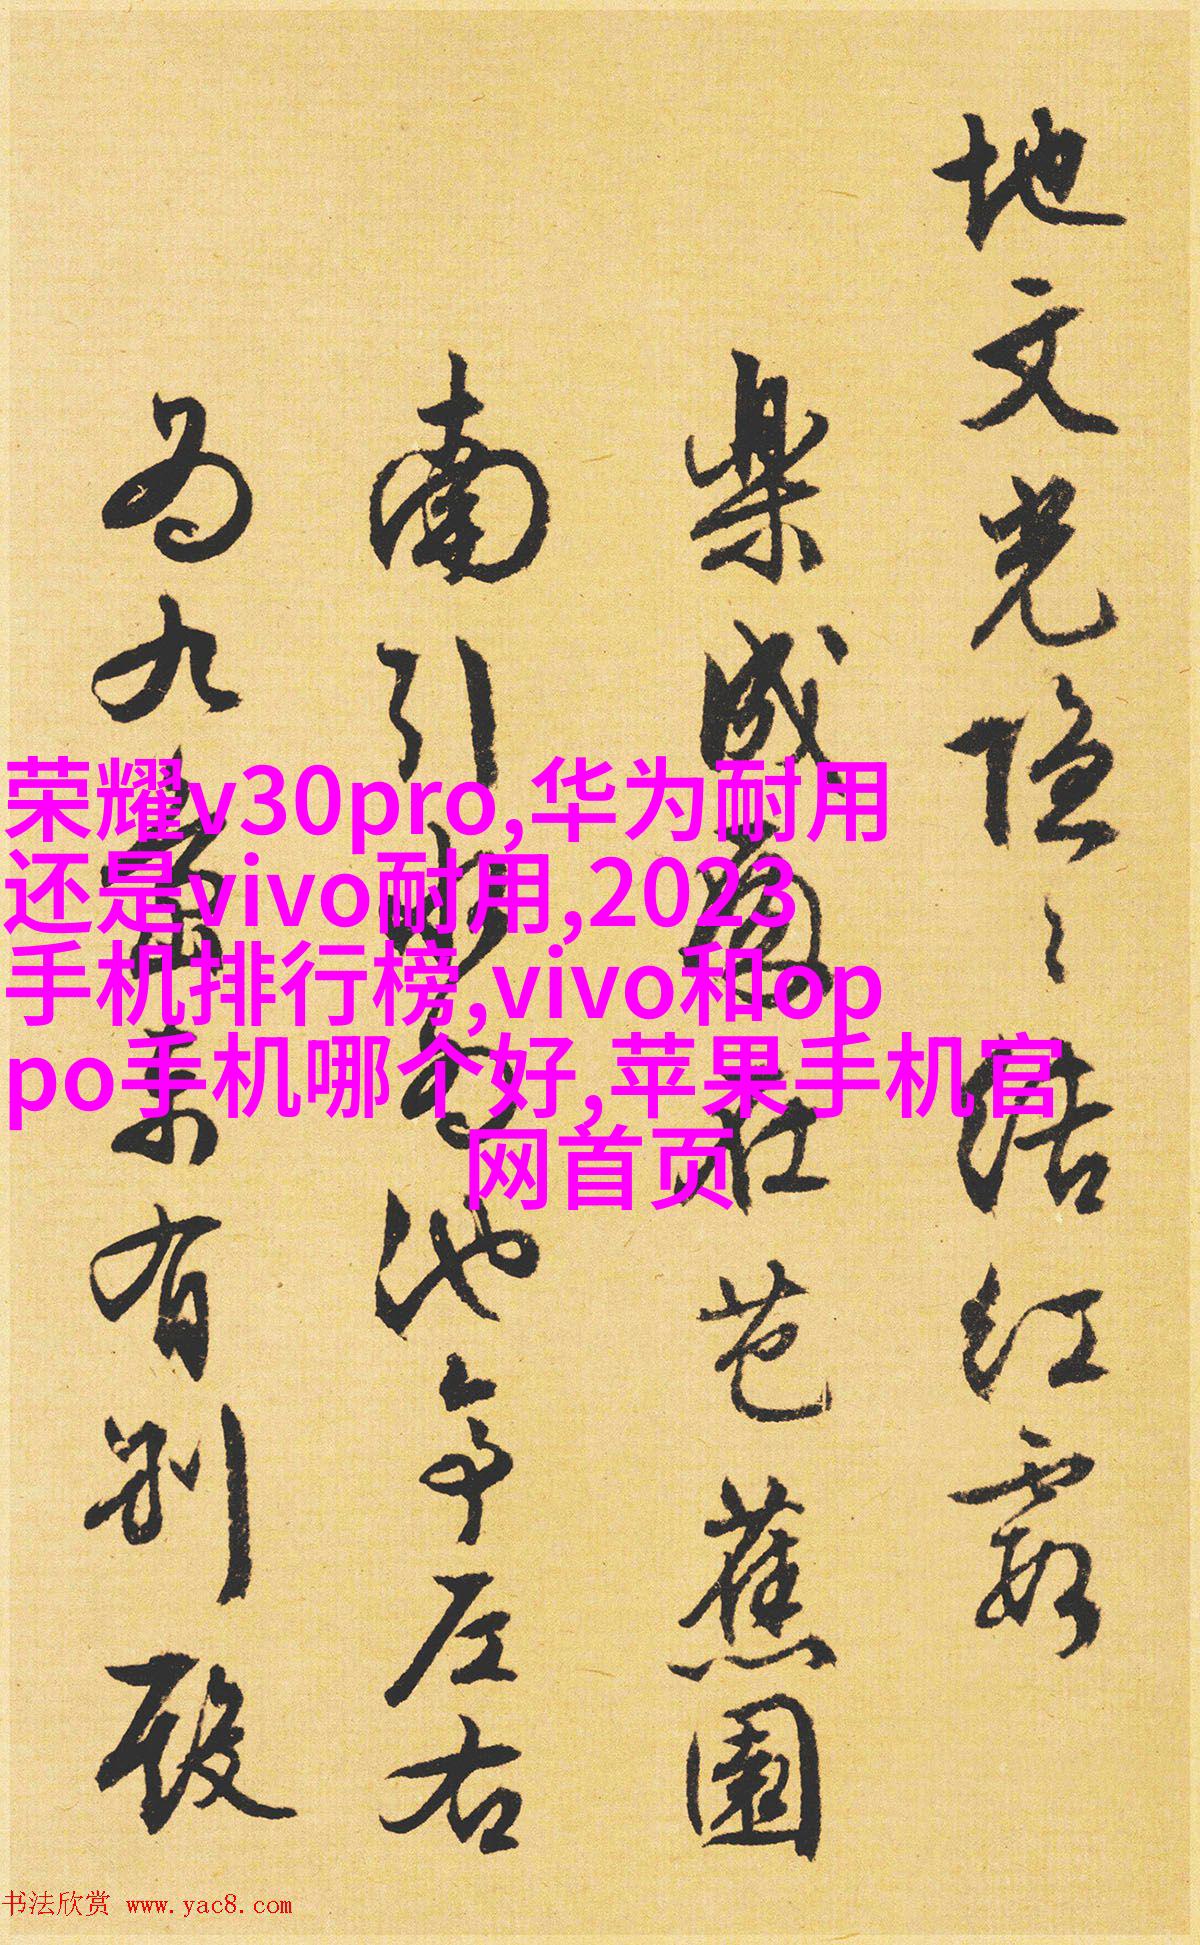 地文光隐〻结红霞
樂成園在芭蕉園
南引水為池亭左右
為九
有别殿
荣耀v30pro,华为耐用
还是vivo耐用,2023
手机排行榜,vivo和op
po手机哪个好,苹果手机官
网首页
书法欣赏 www.yac8.com